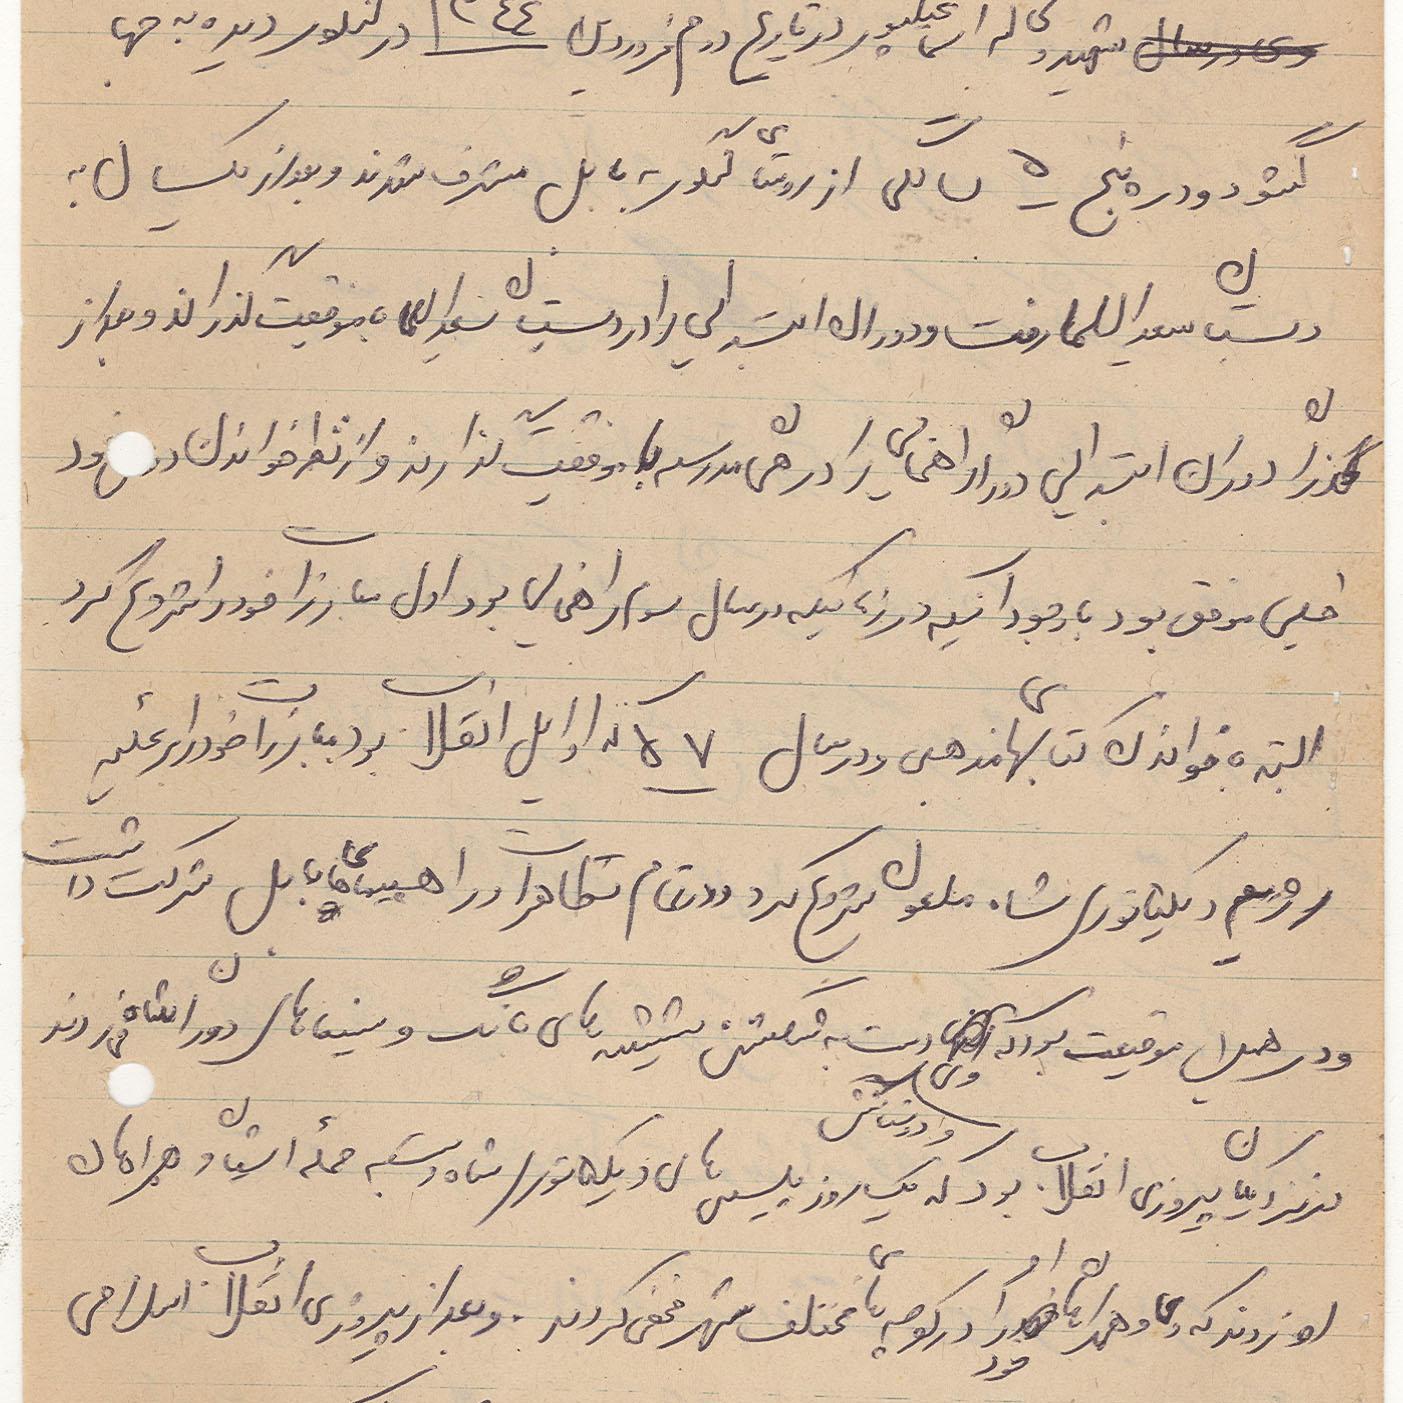 شهید ولی اله اسماعیلپور در تاریخ دوم فروردین ۱۳۴۴ در دیده به جهان
گشود و در پنج ۵ سالگی از روستای به بابل مشرف شدند و بعد از یکسال به
دبستان سعید العلما رفت و دوران ابتدایی را در دبستان سعید العلما به موفقیت گذراند و بعد از
گذراندن دوران ابتدایی دوران راهنمایی را در همان مدرسه با موفقیت گذارند و از نظر خواندن درس خود
خیلی موفق بود با وجود اینکه در زمانیکه در سال سوم راهنمایی بود اول مبارزات خود را شروع کرد
البته به خواندن کتابهای مذهبی و در سال ۵۷ که اوایل انقلاب بود مبارزات خود را بر علیه
رژیم دیکتاتوری شاه ملعون شروع کرد و در تمام تظاهرات و راهپیمائیهای بابل شرکت داشت
و در همین موقعیت بود که وی و دوستانش دست به شکستن شیشه های بانک و سینماهای دوران شاه می زدند
نزدیکیان پیروزی انقلاب بود که یک روز پلیس های دیکتاتوری شاه دست به حمله ایشان و همراهان
او زدند که وی و همراهان خود را در کوچه های مختلف شهر مخفی کردند . و بعد از پیروزی انقلاب اسلامی